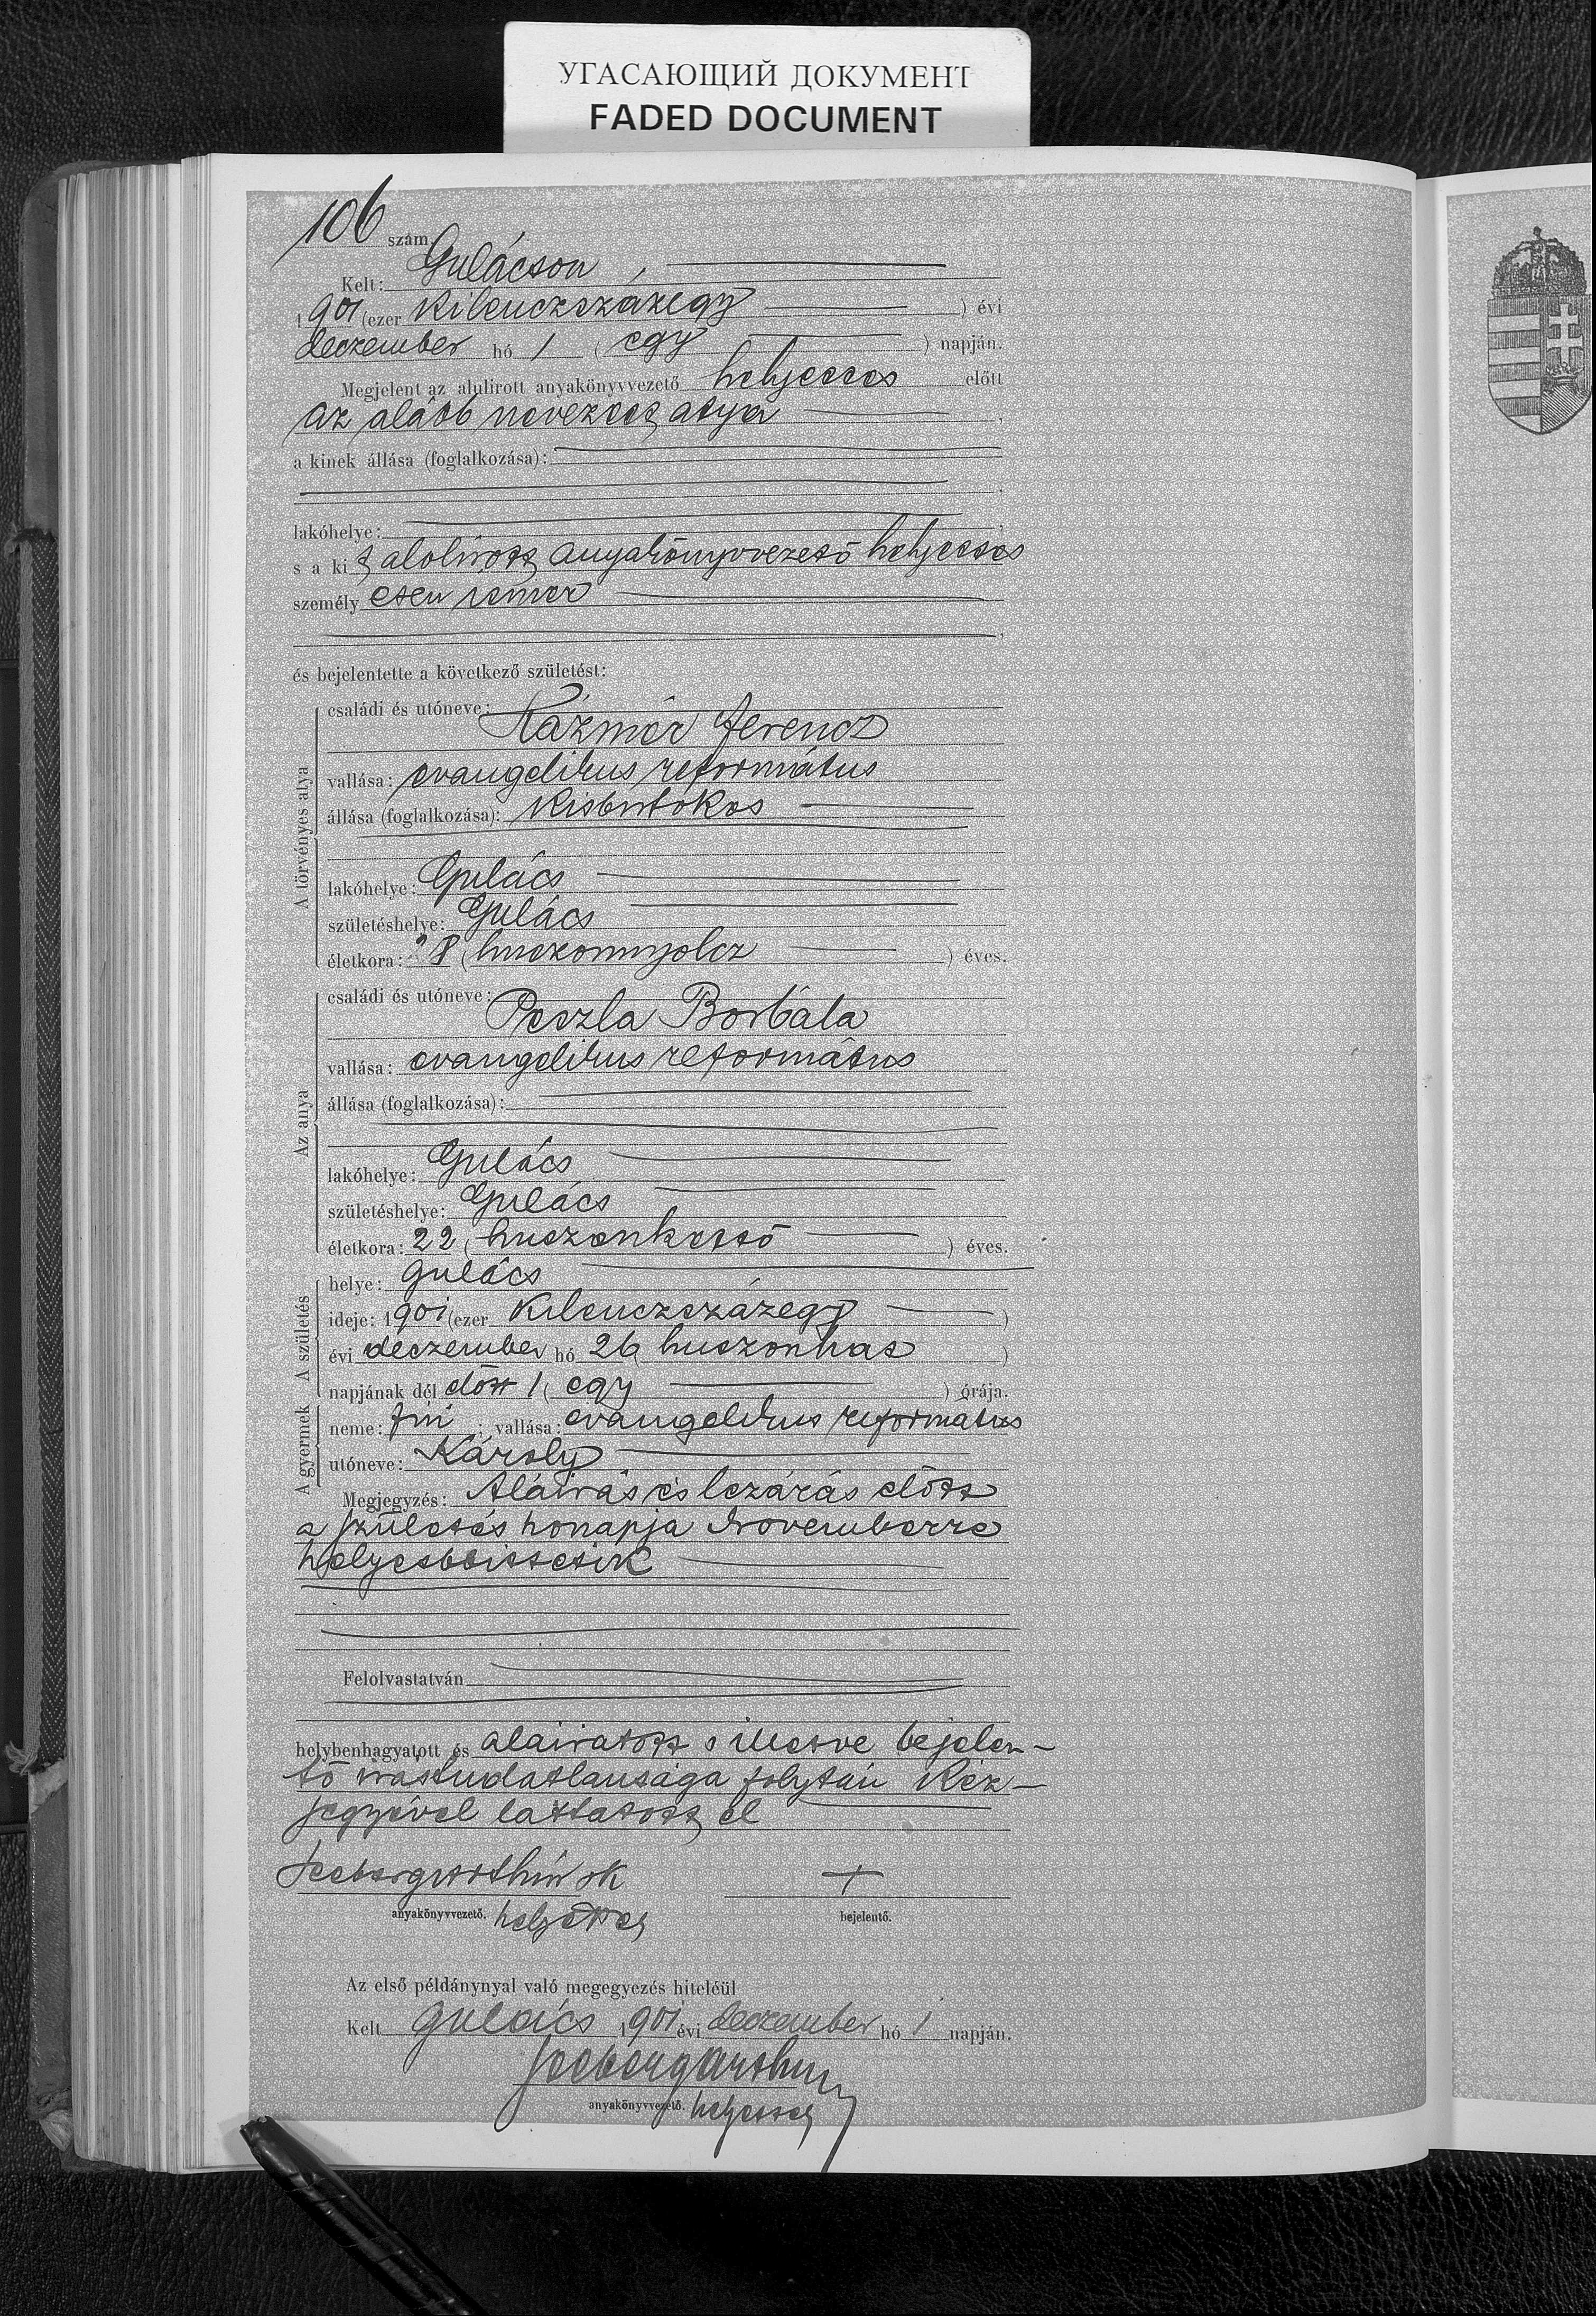 УГАСАЮЩИЙ ДОКУМЕНТ
FADED DOCUMENT
106 szám.
Kelt: Gulácson,
1901 (ezer kilenczszázegy) évi
deczember hó 1 (egy) napján.
Megjelent az alulirott anyakönyvvezető helyettes előtt
az alább nevezett atya,
a kinek állása (foglalkozása):
lakóhelye:
s a kit alolirott anyakönyvvezető helyettes
személyesen ismer
és bejelentette a következő születést:
A törvényes atya
családi és utóneve:
Kázmér Ferencz
vallása: evangelikus református
állása (foglalkozása): Kisbirtokos
lakóhelye: Gulács
születéshelye: Gulács
életkora: 28 (huszonnyolcz) éves.
Az anya
családi és utóneve:
Peszla Borbála
vallása: evangelikus református
állása (foglalkozása):
lakóhelye: Gulács
születéshelye: Gulács
életkora: 22 (huszonkettő) éves.
A születés
helye: Gulács
ideje: 1901 (ezer kilenczszázegy)
évi deczember hó 26 (huszonhat)
napjának dél előtt 1 (egy) órája.
A gyermek
neme: fiú; vallása: evangelikus református
utóneve: Károly
Megjegyzés: Aláirás és lezárás előtt
a születés honapja Novemberre
helyesbbittetik
Felolvastatván
helybenhagyatott és aláiratott s illetve bejelen-
tő irástudatlansága folytán kéz-
jegyével láttatott el
Seeberg Arthúr sk +
anyakönyvvezető. helyettes bejelentő.
Az első példánynyal való megegyezés hiteléül
Kelt Gulács 1901 évi deczember hó 1 napján.
Seeberg Arthur
anyakönyvvezető. helyettes